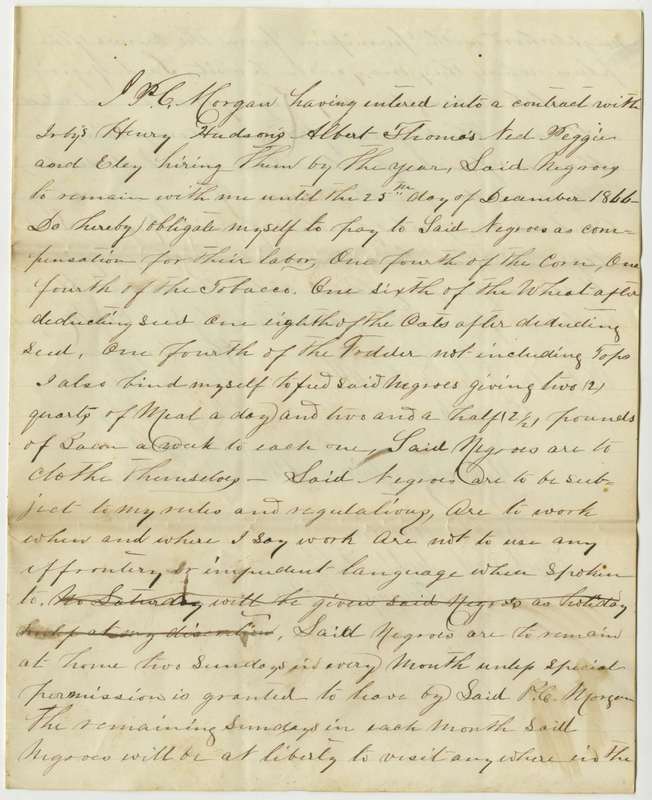 I P. C. Morgan having entered into a contract with
Irbys Henry Hudson, Albert Thomas Ned Peggie
and Eley hiring them by the year, Said Negroes
to remain with me until the 25th day of December 1866
Do hereby obligate myself to pay to Said Negroes as com-
pensation for their labor, One fourth of the Corn, One
fourth of the Tobacco. One sixth of the Wheat after
deducting seed One eighth of the Oats after deducting
seed, One fourth of the Fodder not including Tops
I also bind myself to feed said Negroes giving two (2)
quarts of Meal a day and two and a half (2 1/2) pounds
of Bacon a week to each one, Said Negroes are to
clothe themselves – Said Negroes are to be sub-
ject to my rules and regulations, Are to work
when and where I say work Are not to use any
effrontery or impudent language when spoken
to, No Saturday will be given said Negroes as holiday
unless at my discretion, Said Negroes are to remain
at home two Sundays in every Month unless special
permission is granted to leave by Said P. C. Morgan
The remaining Sundays in each Month said
Negroes will be at liberty to visit anywhere in the